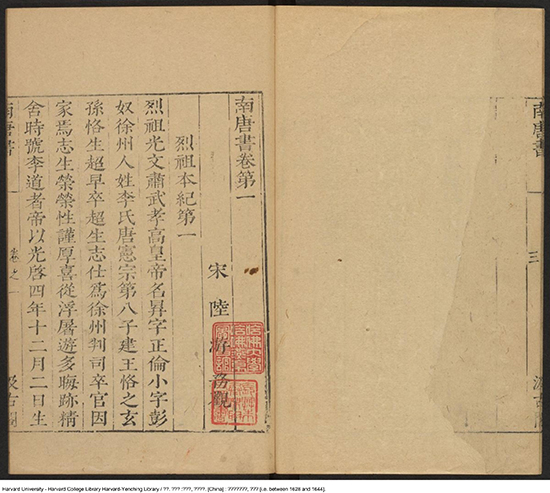 南唐書
三
南唐書卷第一
宋 陸 游務觀
烈祖本紀第一
烈祖光文肅武孝高皇帝名昇字正倫小字彭
奴徐州人姓李氏唐憲宗第八子建王恪之玄
孫恪生超早卒超生志仕為徐州判司卒官因
家焉志生榮榮性謹厚喜從浮屠遊多晦跡精
舍時號李道者帝以光啓四年十二月二日生
南唐書
卷之一
汲古閣
Harvard University - Harvard College Library Harvard-Yenching Library / ??. ??? :???, ????. [China] : ???????, ??? [i.e. between 1628 and 1644].